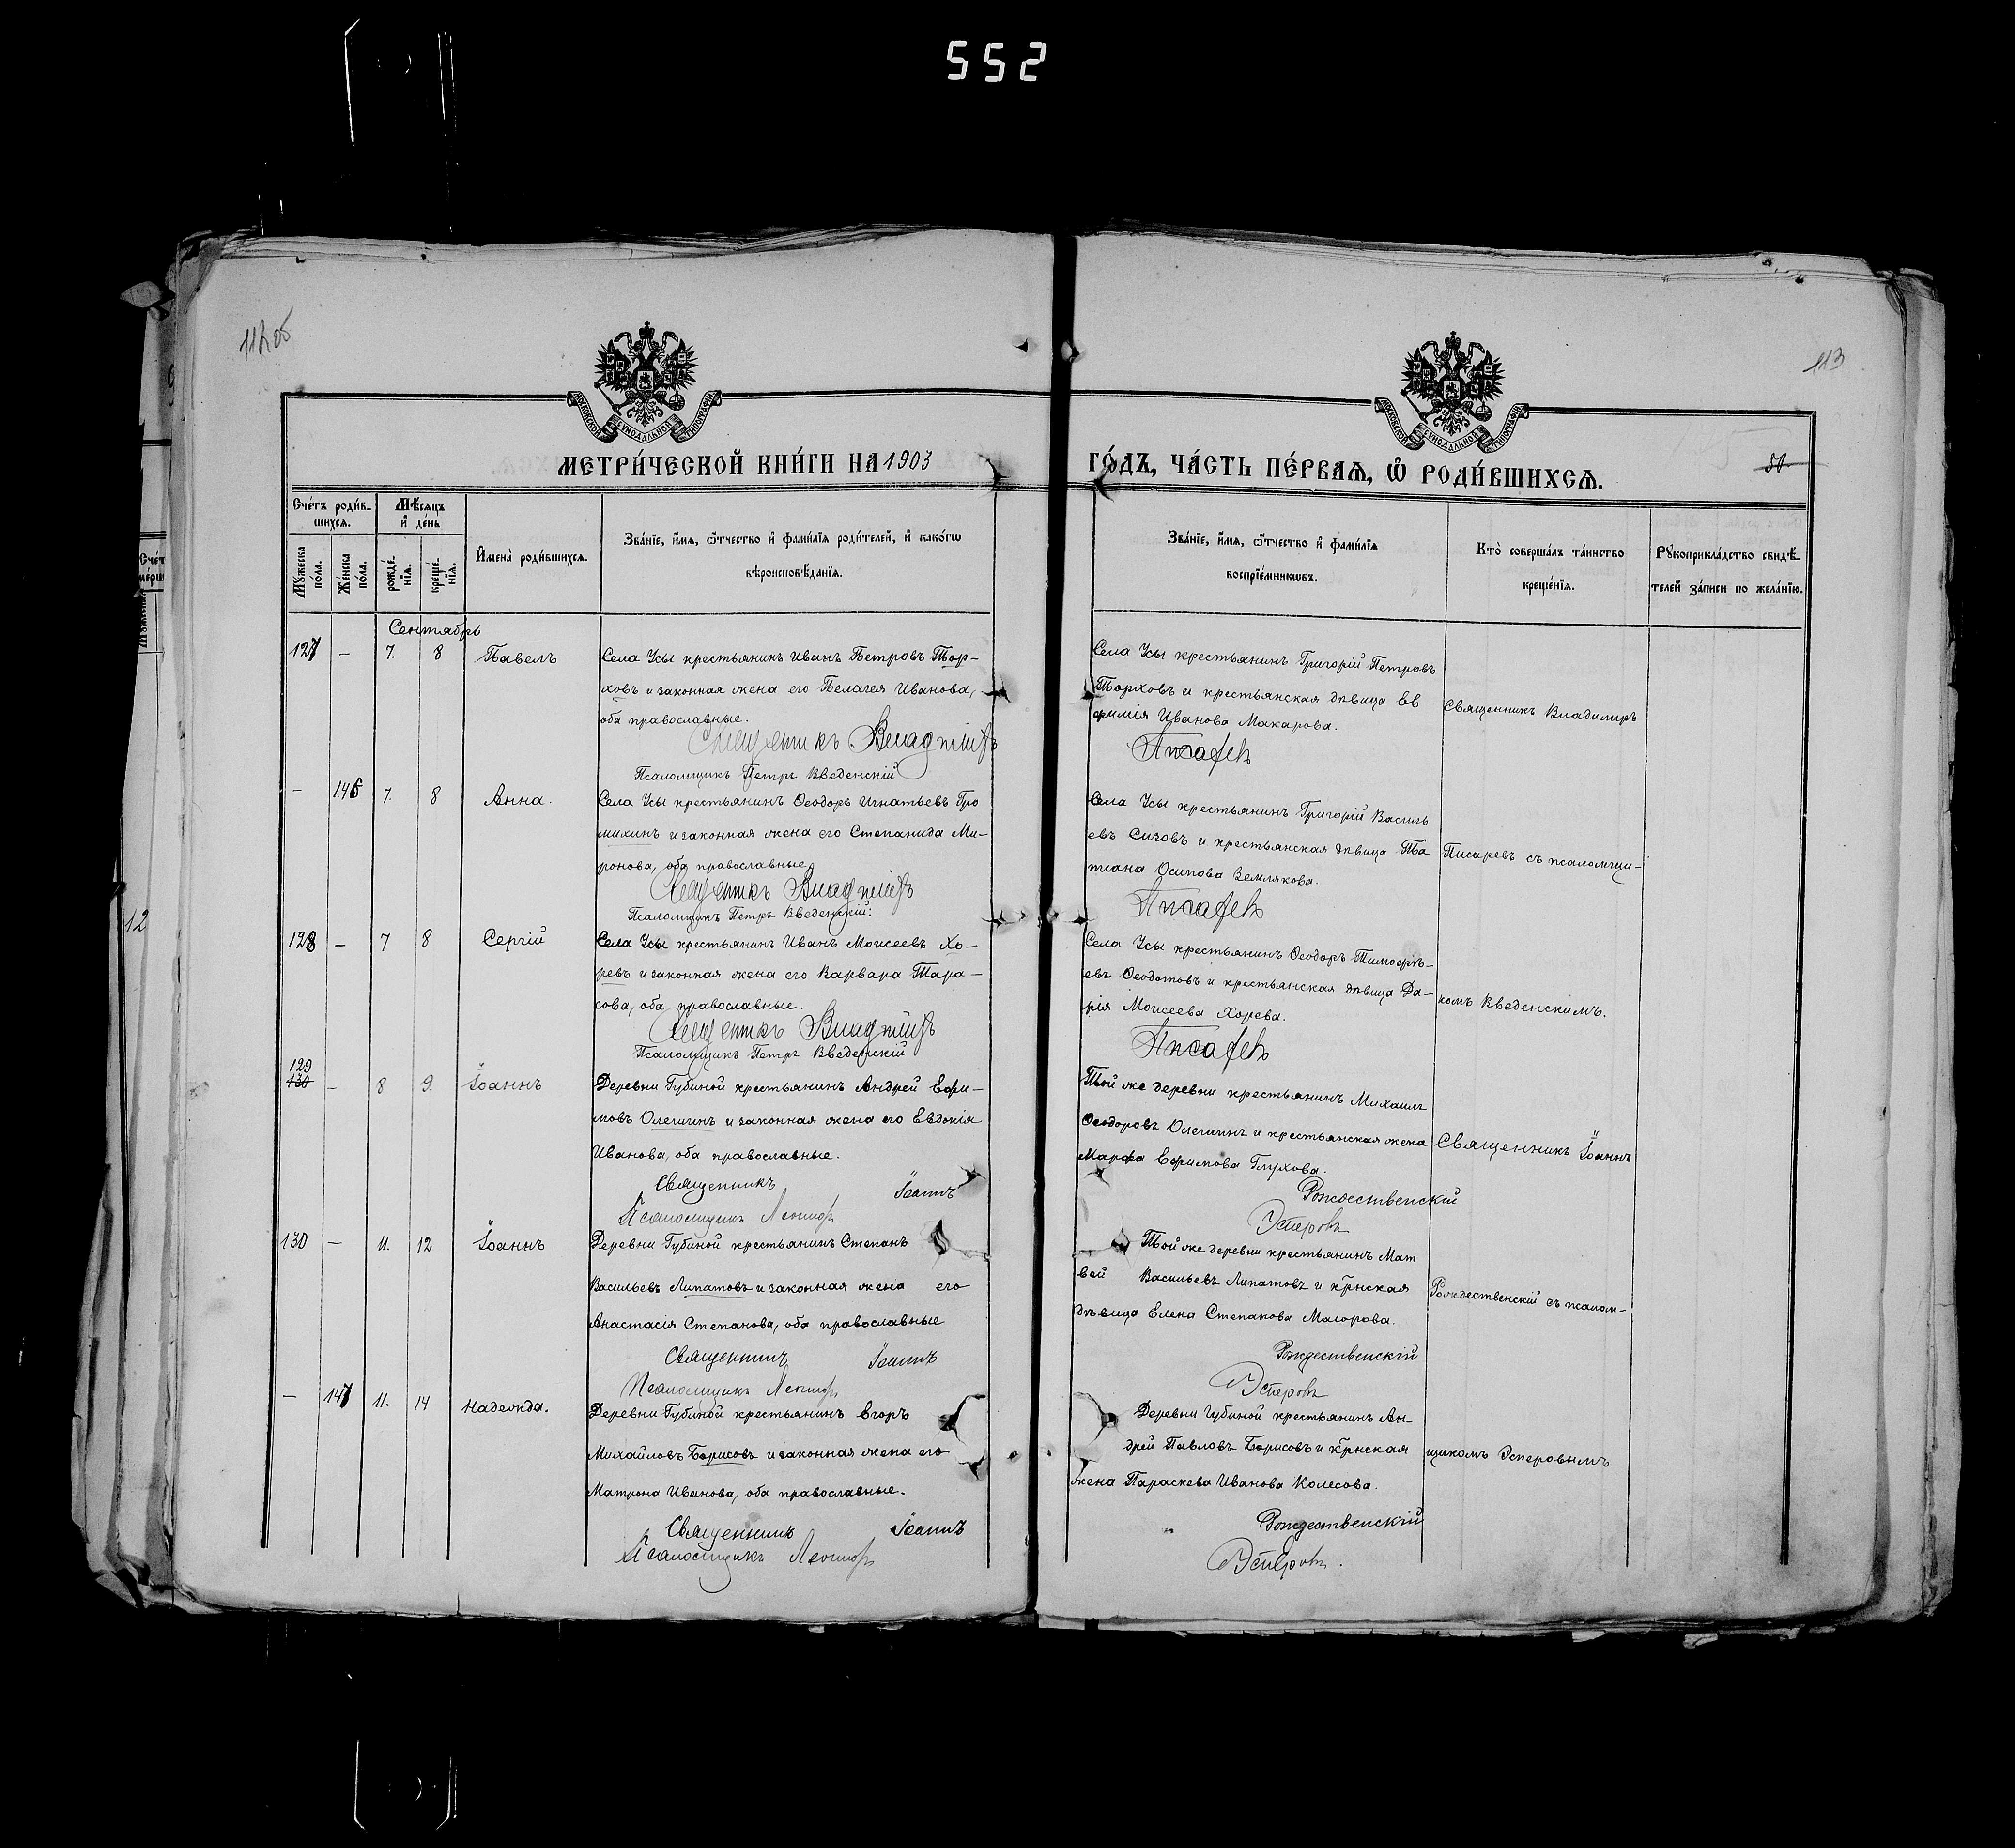 552
112 об
113
МОСКОВСКОЙ СѴНОДАЛЬНОЙ ТИПОГРАФІИ
МОСКОВСКОЙ СѴНОДАЛЬНОЙ ТИПОГРАФІИ
МЕТРИ́ЧЕСКОЙ КНИ́ГИ НА 1903
ГО́ДЪ, ЧА́СТЬ ПЕ́РВАѦ, Ѡ҆ РОДИ́ВШИХСѦ.
51.
Сче́тъ роди́в-
шихсѧ.
Мѣ́сѧцъ
и҆ де́нь
Мꙋ́жеска
по́ла.
Же́нска
по́ла.
рожде́-
нїѧ.
креще́-
нїѧ.
И҆мена̀ роди́вшихсѧ.
Зва́нїе, и҆́мѧ, ѻ҆́тчество и҆ фами́лїѧ роди́телей, и҆ како́гѡ
вѣроисповѣ́данїѧ.
Зва́нїе, и҆́мѧ, ѻ҆́тчество и҆ фами́лїѧ
воспрїе́мникѡвъ.
Кто̀ соверша́лъ та́инство
креще́нїѧ.
Рꙋкоприкла́дство свидѣ́-
телей за́писи по жела́нїю.
Сентябрь
127 — 7. 8 Павелъ
Села Усы крестьянинъ Иванъ Петровъ Тор-
ховъ и законная жена его Пелагея Иванова,
оба православные.
Священникъ Владиміръ
Псаломщикъ Петръ Введенскій
Села Усы крестьянинъ Григорій Петровъ
Торховъ и крестьянская дѣвица Ев
фимія Иванова Макарова.
Писаревъ
Священникъ Владимиръ
— 146 7. 8 Анна.
Села Усы крестьянинъ Ѳеодоръ Игнатьевъ Гро
михинъ и законная жена его Степанида Ми-
ронова, оба православные
Священникъ Владиміръ
Псаломщикъ Петръ Введенскій.
Села Усы крестьянинъ Григорій Василь
евъ Сизовъ и крестьянская дѣвица Та
тіана Осипова Землякова.
Писаревъ
Писаревъ съ псаломщи-
128 — 7 8 Сергій
Села Усы крестьянинъ Иванъ Моисеевъ Хо-
ревъ и законная жена его Варвара Тара-
сова, оба православные.
Священникъ Владиміръ
Псаломщикъ Петръ Введенскій
Села Усы крестьянинъ Ѳеодоръ Тимофѣ-
евъ Ѳеодотовъ и крестьянская дѣвица Да-
рія Моисеева Хорева.
Писаревъ
комъ Введенскимъ.
129
130 — 8 9. Іоаннъ
Деревни Губиной крестьянинъ Андрей Ефи-
мовъ Олешинъ и законная жена его Евдокія
Иванова, оба православные.
Священникъ Іоаннъ
Псаломщикъ
Той же деревни крестьянинъ Михаилъ
Ѳеодоровъ Олешинъ и крестьянская жена
Марфа Ефимова Глухова.
Рождественскій
Эсперовъ
Священникъ Іоаннъ
130 — 11. 12 Іоаннъ
Деревни Губиной крестьянинъ Степанъ
Васильевъ Липатовъ и законная жена его
Анастасія Степанова, оба православные
Священникъ Іоаннъ
Псаломщикъ
Той же деревни крестьянинъ Мат
вей Васильевъ Липатовъ и крнская
дѣвица Елена Степанова Маіорова.
Рождественскій
Эсперовъ
Рождественскій съ псалом-
— 147 11. 14 Надежда.
Деревни Губиной крестьянинъ Егоръ
Михайловъ Борисовъ и законная жена его
Матрона Иванова, оба православные.
Священникъ Іоаннъ
Псаломщикъ
Деревни Губиной крестьянинъ Ан-
дрей Павловъ Борисовъ и крнская
жена Параскева Иванова Колесова.
Рождественскій
Эсперовъ.
щикомъ Эсперовымъ
12